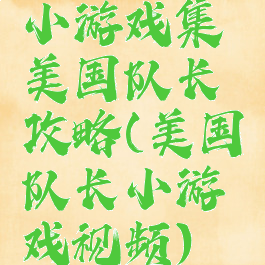 小游戏集
美国队长
攻略(美国
队长小游
戏视频)